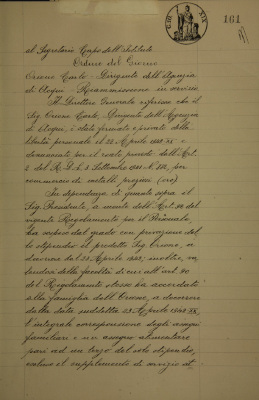 161
al Segretario Capo dell'Istituto
Ordine del Giorno
Oreno Carlo - Dirigente dell'Agenzia
di Acqui - Riammissione in servizio.
Il Direttore Generale riferisce che il
Sig. Oreno Carlo, Dirigente dell'Agenzia
di Acqui, è stato fermato e privato della
libertà personale il 22 Aprile 1942 XX e
denunciato per il reato previsto dall'Art.
2 del R.D.L. Settembre 1941 N. 882, per
commercio di metalli preziosi (oro)
In dipendenza di quanto sopra il
Sig. Presidente, a mente dell'Art. 90 del
vigente Regolamento per il Personale,
ha sospeso dal grado con privazione del-
lo stipendio il predetto Sig. Oreno, a
decorrere dal 23 Aprile 1942; inoltre, va-
lendosi della facoltà di cui all'art. 90
del Regolamento stesso ha accordato
alla famiglia dell'Oreno, a decorrere
dalla data suddetta 23 Aprile 1942 XX,
l'integrale corresponsione degli assegni
familiari e un assegno alimentare
pari ad un terzo del solo stipendio,
escluso il supplemento di servizio at-